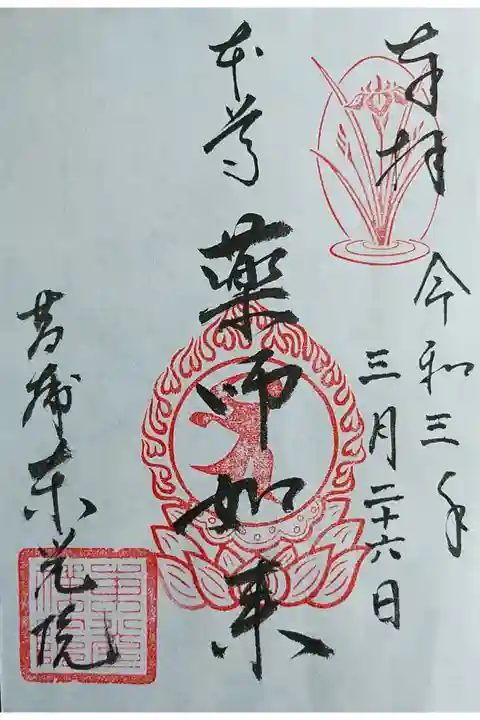 奉拝
令和三年
三月二十六日
本尊
薬師如来
菖蒲 東光院